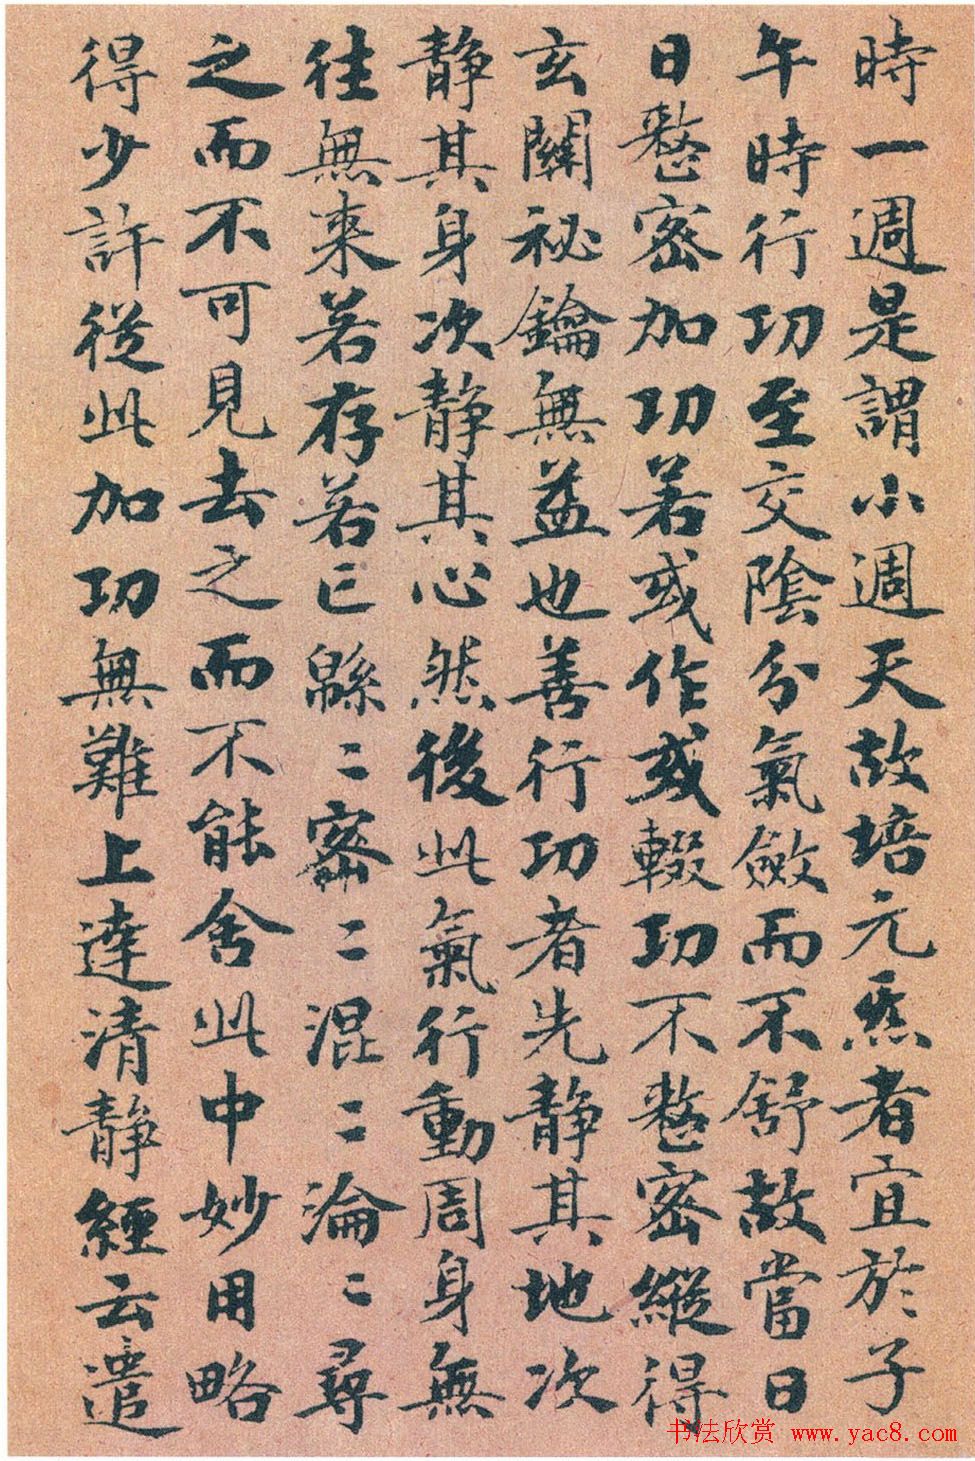 時一週是謂小週天故培元炁者宜於子
午時行功至交陰分氣斂而不舒故當日
日慇密加功若或作或輟功不慇密縱得
玄關祕鑰無益也善行功者先静其地次
静其身次静其心然後此氣行動周身無
往無来若存若亡緜〻密〻混〻淪〻尋
之而不可見去之而不能舍此中妙用略
得少許從此加功無難上達清静經云遣
书法欣赏 www.yac8.com